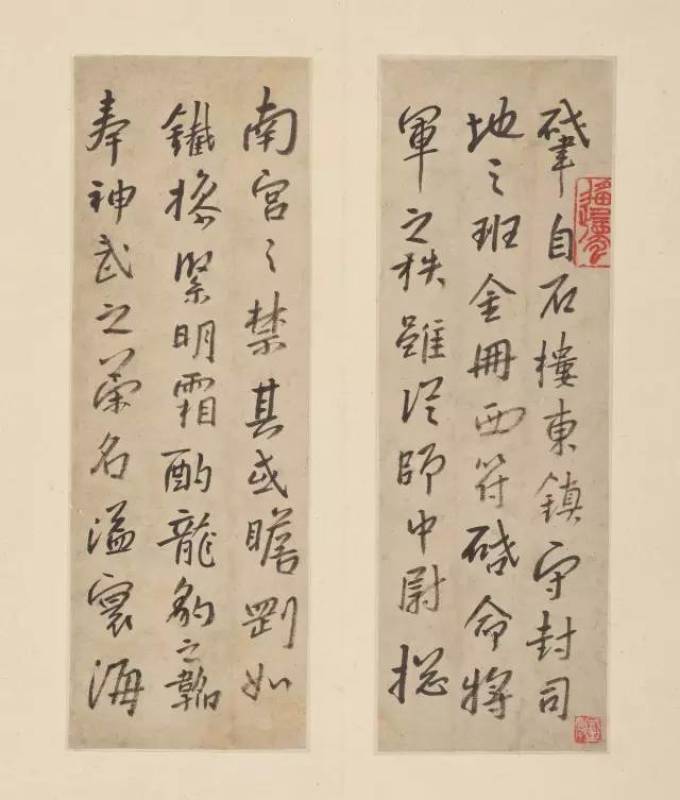 肇自石樓東鎮守封司
地之班金冊西符啓命將
軍之秩雖從師中尉摠
南宮之禁其或膽剛如
鐵操緊明霜酌龍豹之韜
奉神武之名溢寰海